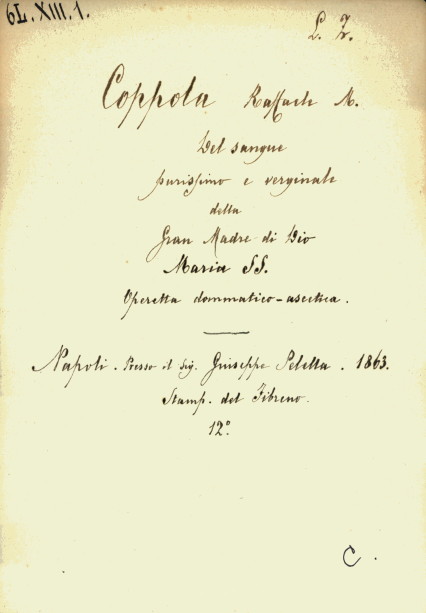 6L.XIII.1.
L. g.
Coppola Raffaele M.
Del sangue
purissimo e verginale
della
Gran Madre di Dio
Maria SS.
Operetta dommatico-ascetica.
Napoli. Presso il Sig. Giuseppe Pelella. 1863.
Stamp. del Fibreno.
12°
C.